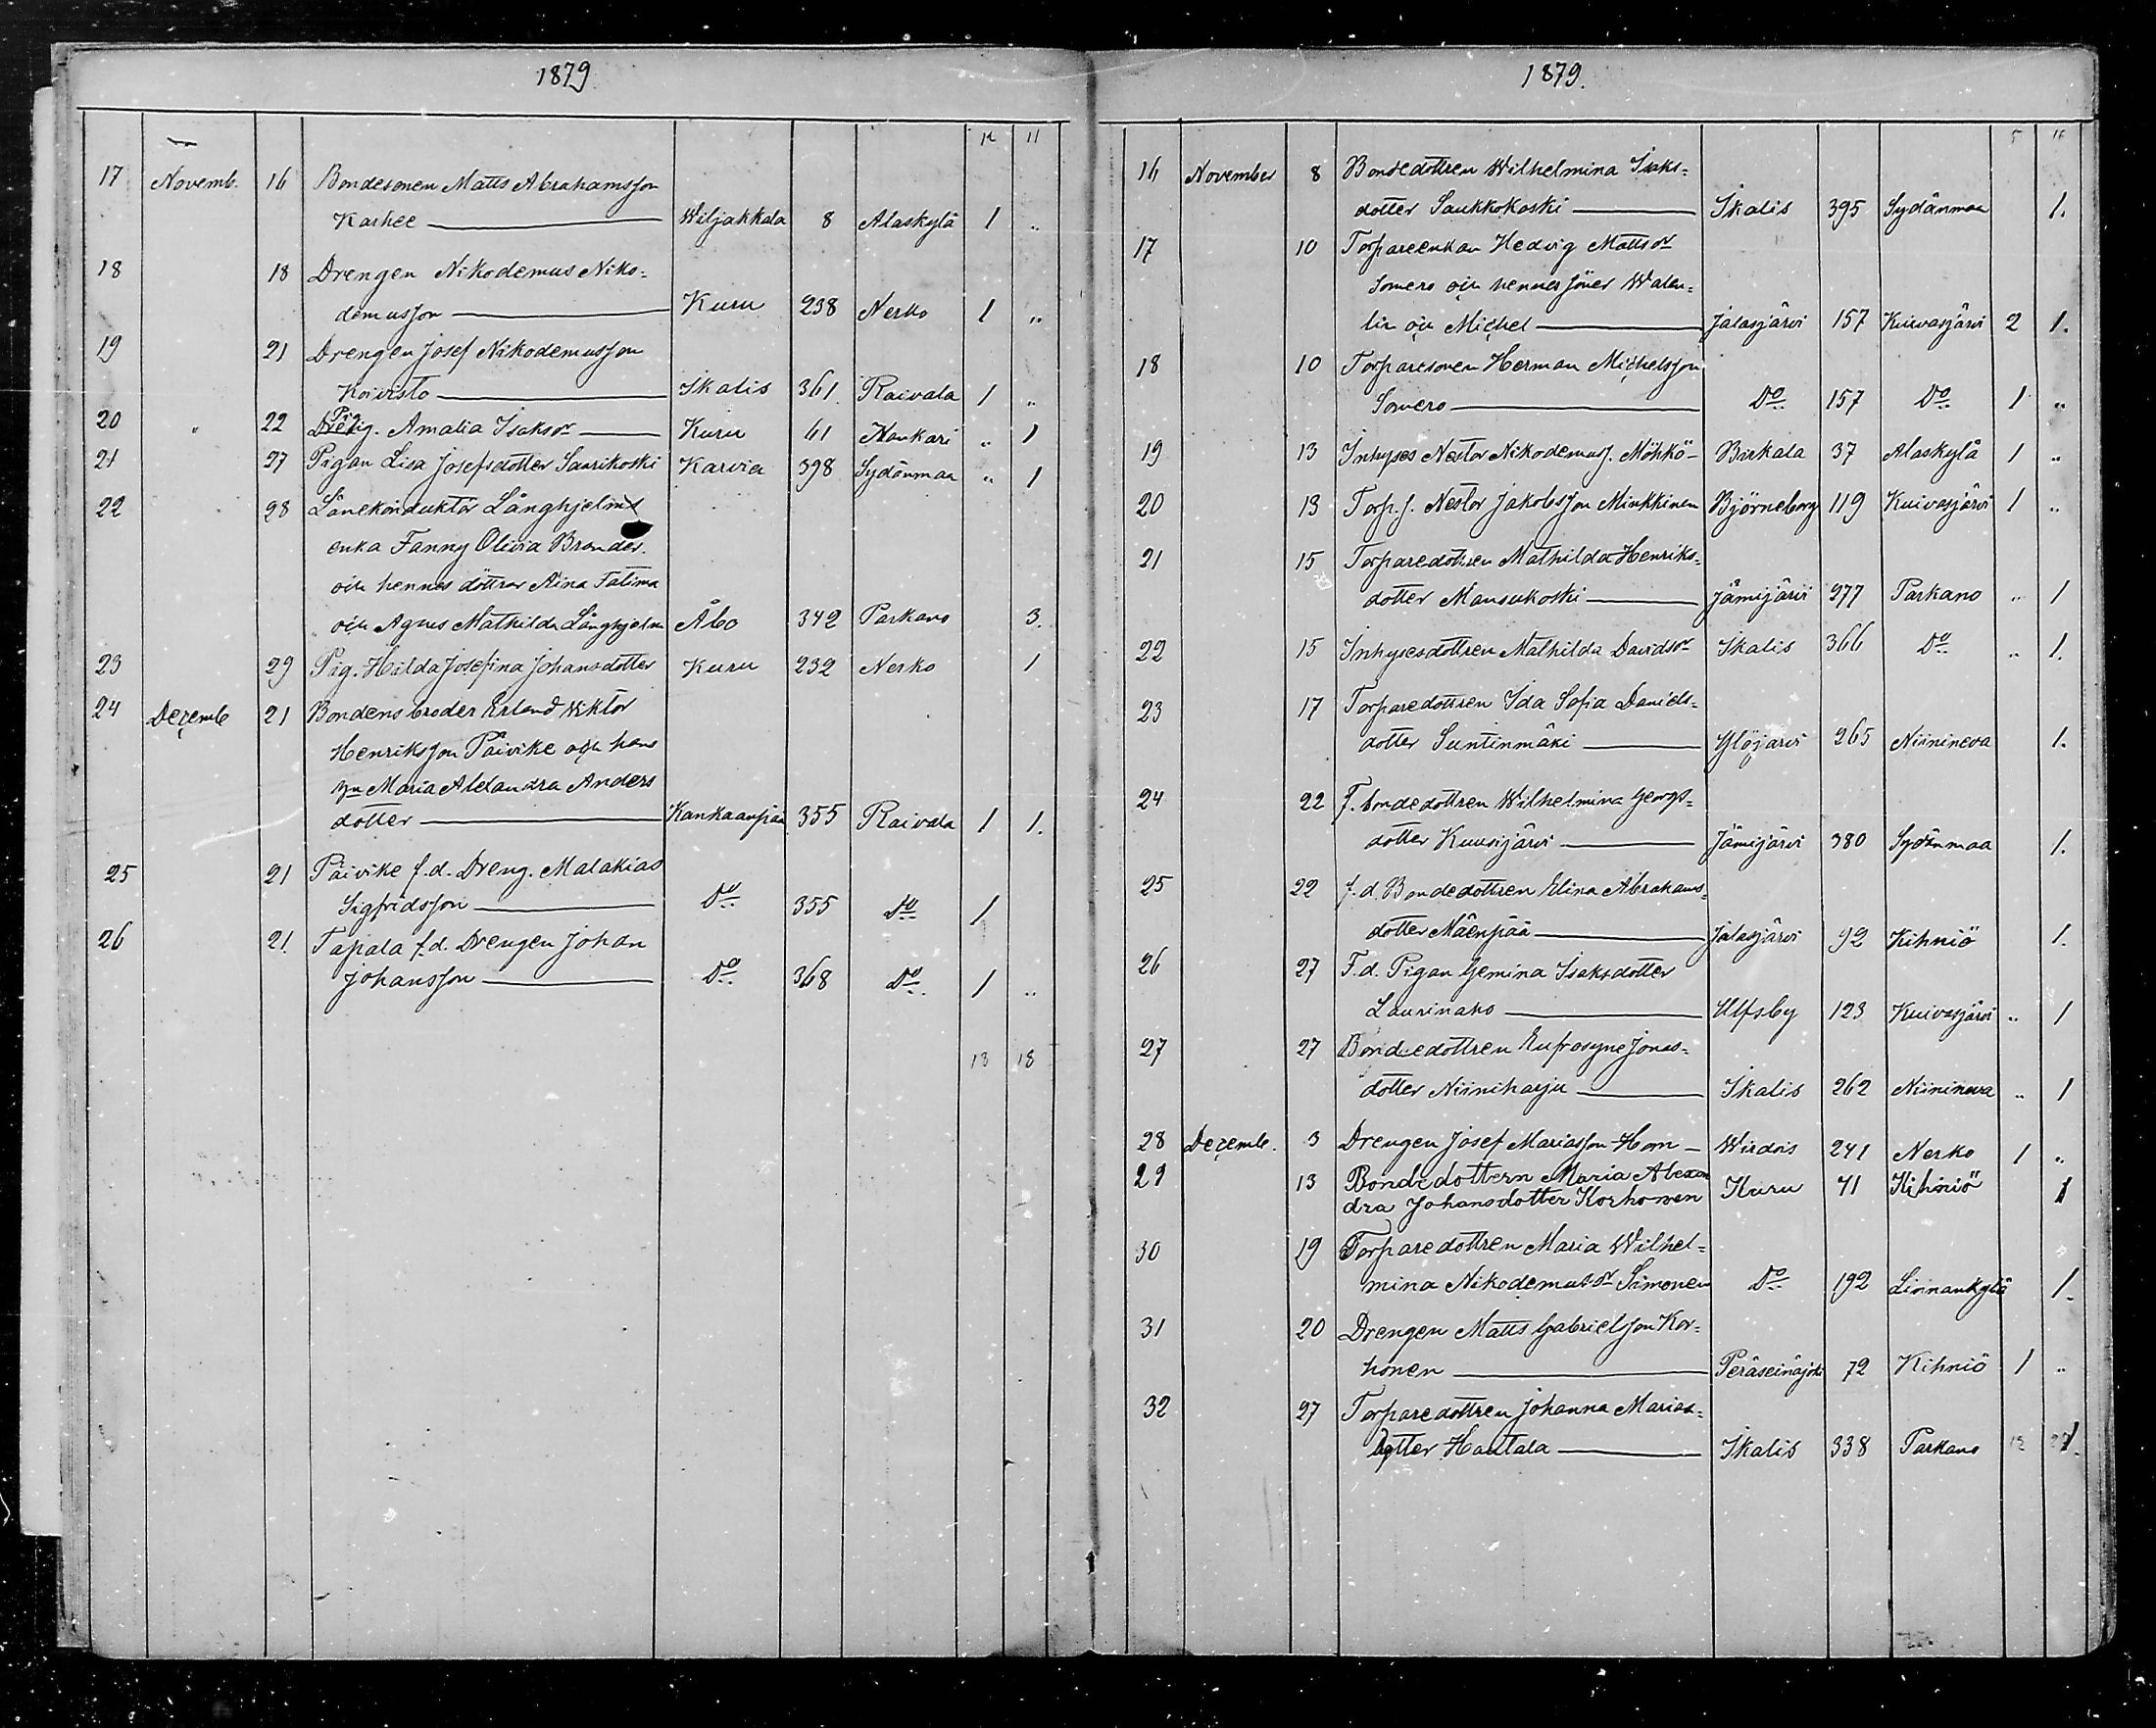 1879
12 11
17 Novemb. 16 Bondesonen Matts Abrahamsson
Karhee Wiljakkala 8 Alaskylä 1 „
18 18 Drengen Nikodemus Niko=
demusson Kuru 238 Nerko 1 „
19 21 Drengen Josef Nikodemusson
Koivisto Ikalis 361. Raivala 1 „
20 „ 22 Pig. Amalia Isaksdr Kuru 61 Kankari „ 1
21 27 Pigan Lisa Josefsdotter Saarikoski Karvia 398 Sydänmaa „ 1
22 28 Länekonduktör Långhjelms
enka Fanny Olivia Brander.
och hennes döttrar Aina Fatima
och Agnes Mathilda Långhjelm Åbo 342 Parkano 3.
23 29 Pig. Hilda Josefina Johansdotter Kuru 232 Nerko 1
24 Decemb 21 Bondens broder Erland Wiktor
Henriksson Päivike och hans
hu Maria Alexandra Anders
dotter Kankaanpää 355 Raivala 1 1.
25 21 Päivike f.d. Dreng. Malakias
Sigfridsson Do 355 Do 1
26 21. Tapala f.d. Drengen Johan
Johansson Do 368 Do 1 „
13 18
1879.
5 16
16 November 8 Bondedottren Wilhelmina Isaks=
dotter Saukkokoski Ikalis 395 Sydänmaa 1.
17 10 Torpareenkan Hedvig Mattsdr
Somero och hennes söner Walen=
tin och Michel Jalasjärvi 157 Kuivasjärvi 2 1.
18 10 Torparesonen Herman Michelsson
Somero Do 157 Do 1 „
19 13 Inhyses Nestor Nikodemuss. Möhkö Birkala 37 Alaskylä 1 „
20 13 Torp.s. Nestor Jakobsson Minkkinen Björneborg 119 Kuivasjärvi 1 „
21 15 Torparedottren Mathilda Henriks=
dotter Mansukoski Jämijärvi 277 Parkano „ 1
22 15 Inhysesdottren Mathilda Davidsdr Ikalis 366 Do „ 1.
23 17 Torparedottren Ida Sofia Daniels=
dotter Suntinmäki Ylöjärvi 265 Niinineva 1.
24 22 f. bondedottren Wilhelmina Georgs=
dotter Kuusijärvi Jämijärvi 380 Sydänmaa 1.
25 22 f.d. Bondedottren Elina Abrahams=
dotter Mäenpää Jalasjärvi 92 Kihniö 1.
26 27 F.d. Pigan Gemina Isaksdotter
Laurinaho Ulfsby 123 Kuivasjärvi „ 1
27 27 Bondedottren Eufrosyne Jonas=
dotter Niiniharju Ikalis 262 Niinineva „ 1
28 Decemb. 3 Drengen Josef Mariasson Hom Wirdois 241 Nerko 1 „
29 13 Bondedottern Maria Alexan
dra Johansdotter Korhonen Kuru 71 Kihniö 1
30 19 Torparedottren Maria Wilhel=
mina Nikodemusdr Simonen Do 192 Linnankylä 1.
31 20 Drengen Matts Gabrielsson Kor=
honen Peräseinäjoki 72 Kihniö 1 „
32 27 Torparedottren Johanna Marias=
dotter Hautala Ikalis 338 Parkano 1.